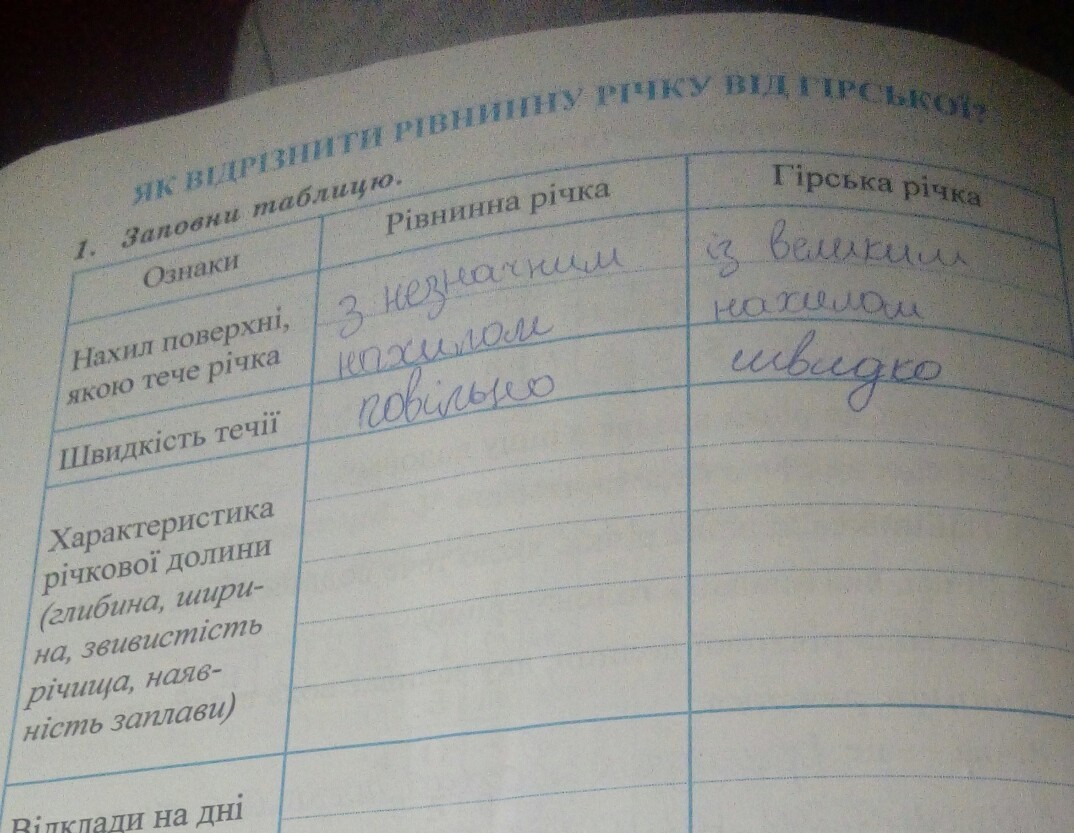 ЯК ВІДРІЗНИТИ РІВНИННУ РІЧКУ ВІД ГІРСЬКОЇ?
1. Заповни таблицю.
Ознаки
Рівнинна річка
Гірська річка
Нахил поверхні,
якою тече річка
з незначним
нахилом
із великим
нахилом
Швидкість течії
повільно
швидко
Характеристика
річкової долини
(глибина, шири-
на, звивистість
річища, наяв-
ність заплави)
Відклади на дні